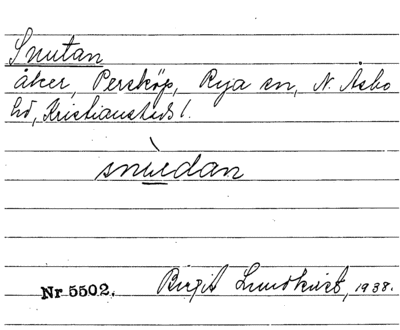 Snutan
åker, Persköp, Rya sn, N. Åsbo
hd, Kristianstads l.
snùdan
Nr 5502. Birgit Lundkvist, 1938.